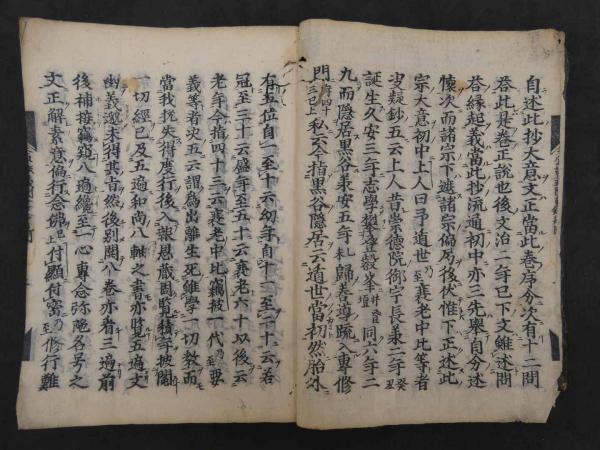 自述此抄大意文正當此卷序分次有十二問
荅此是卷正說也後文治二年已下文雖述問
荅緣起義當此抄流通初中亦三先舉自分述
懷次而諸宗下遮諸宗偏局後伏惟下正述此
宗大意初中上人曰予遁世至衰老中比等者
決疑鈔五云上人者崇德院御宇長承二年癸丑
誕生久安三年志學登台嶺同六年二
九而隱居黑谷承安五年歸善導疏入專修
門四十三已上私云今指黑谷隱居云遁世當初然胎外
有五位自一至十六幼年自十至二十云若
冠至三十云盛年至五十云衰老六十以後云
老年今指四十三云衰老中比竊披一代乃至要
義等者決五云謂為出離生死雖學一切教而
當我機失得度行後入報恩藏因覽積年披閱
一切經已及五遍和尚八軸之書亦覽五遍文
幽義邃未得其旨然後別開八卷亦看三遍前
後補接竊窺八遍纔至一心專念弥陀名号之
文正解素意偏行念佛已上付顯付密乃至修行難